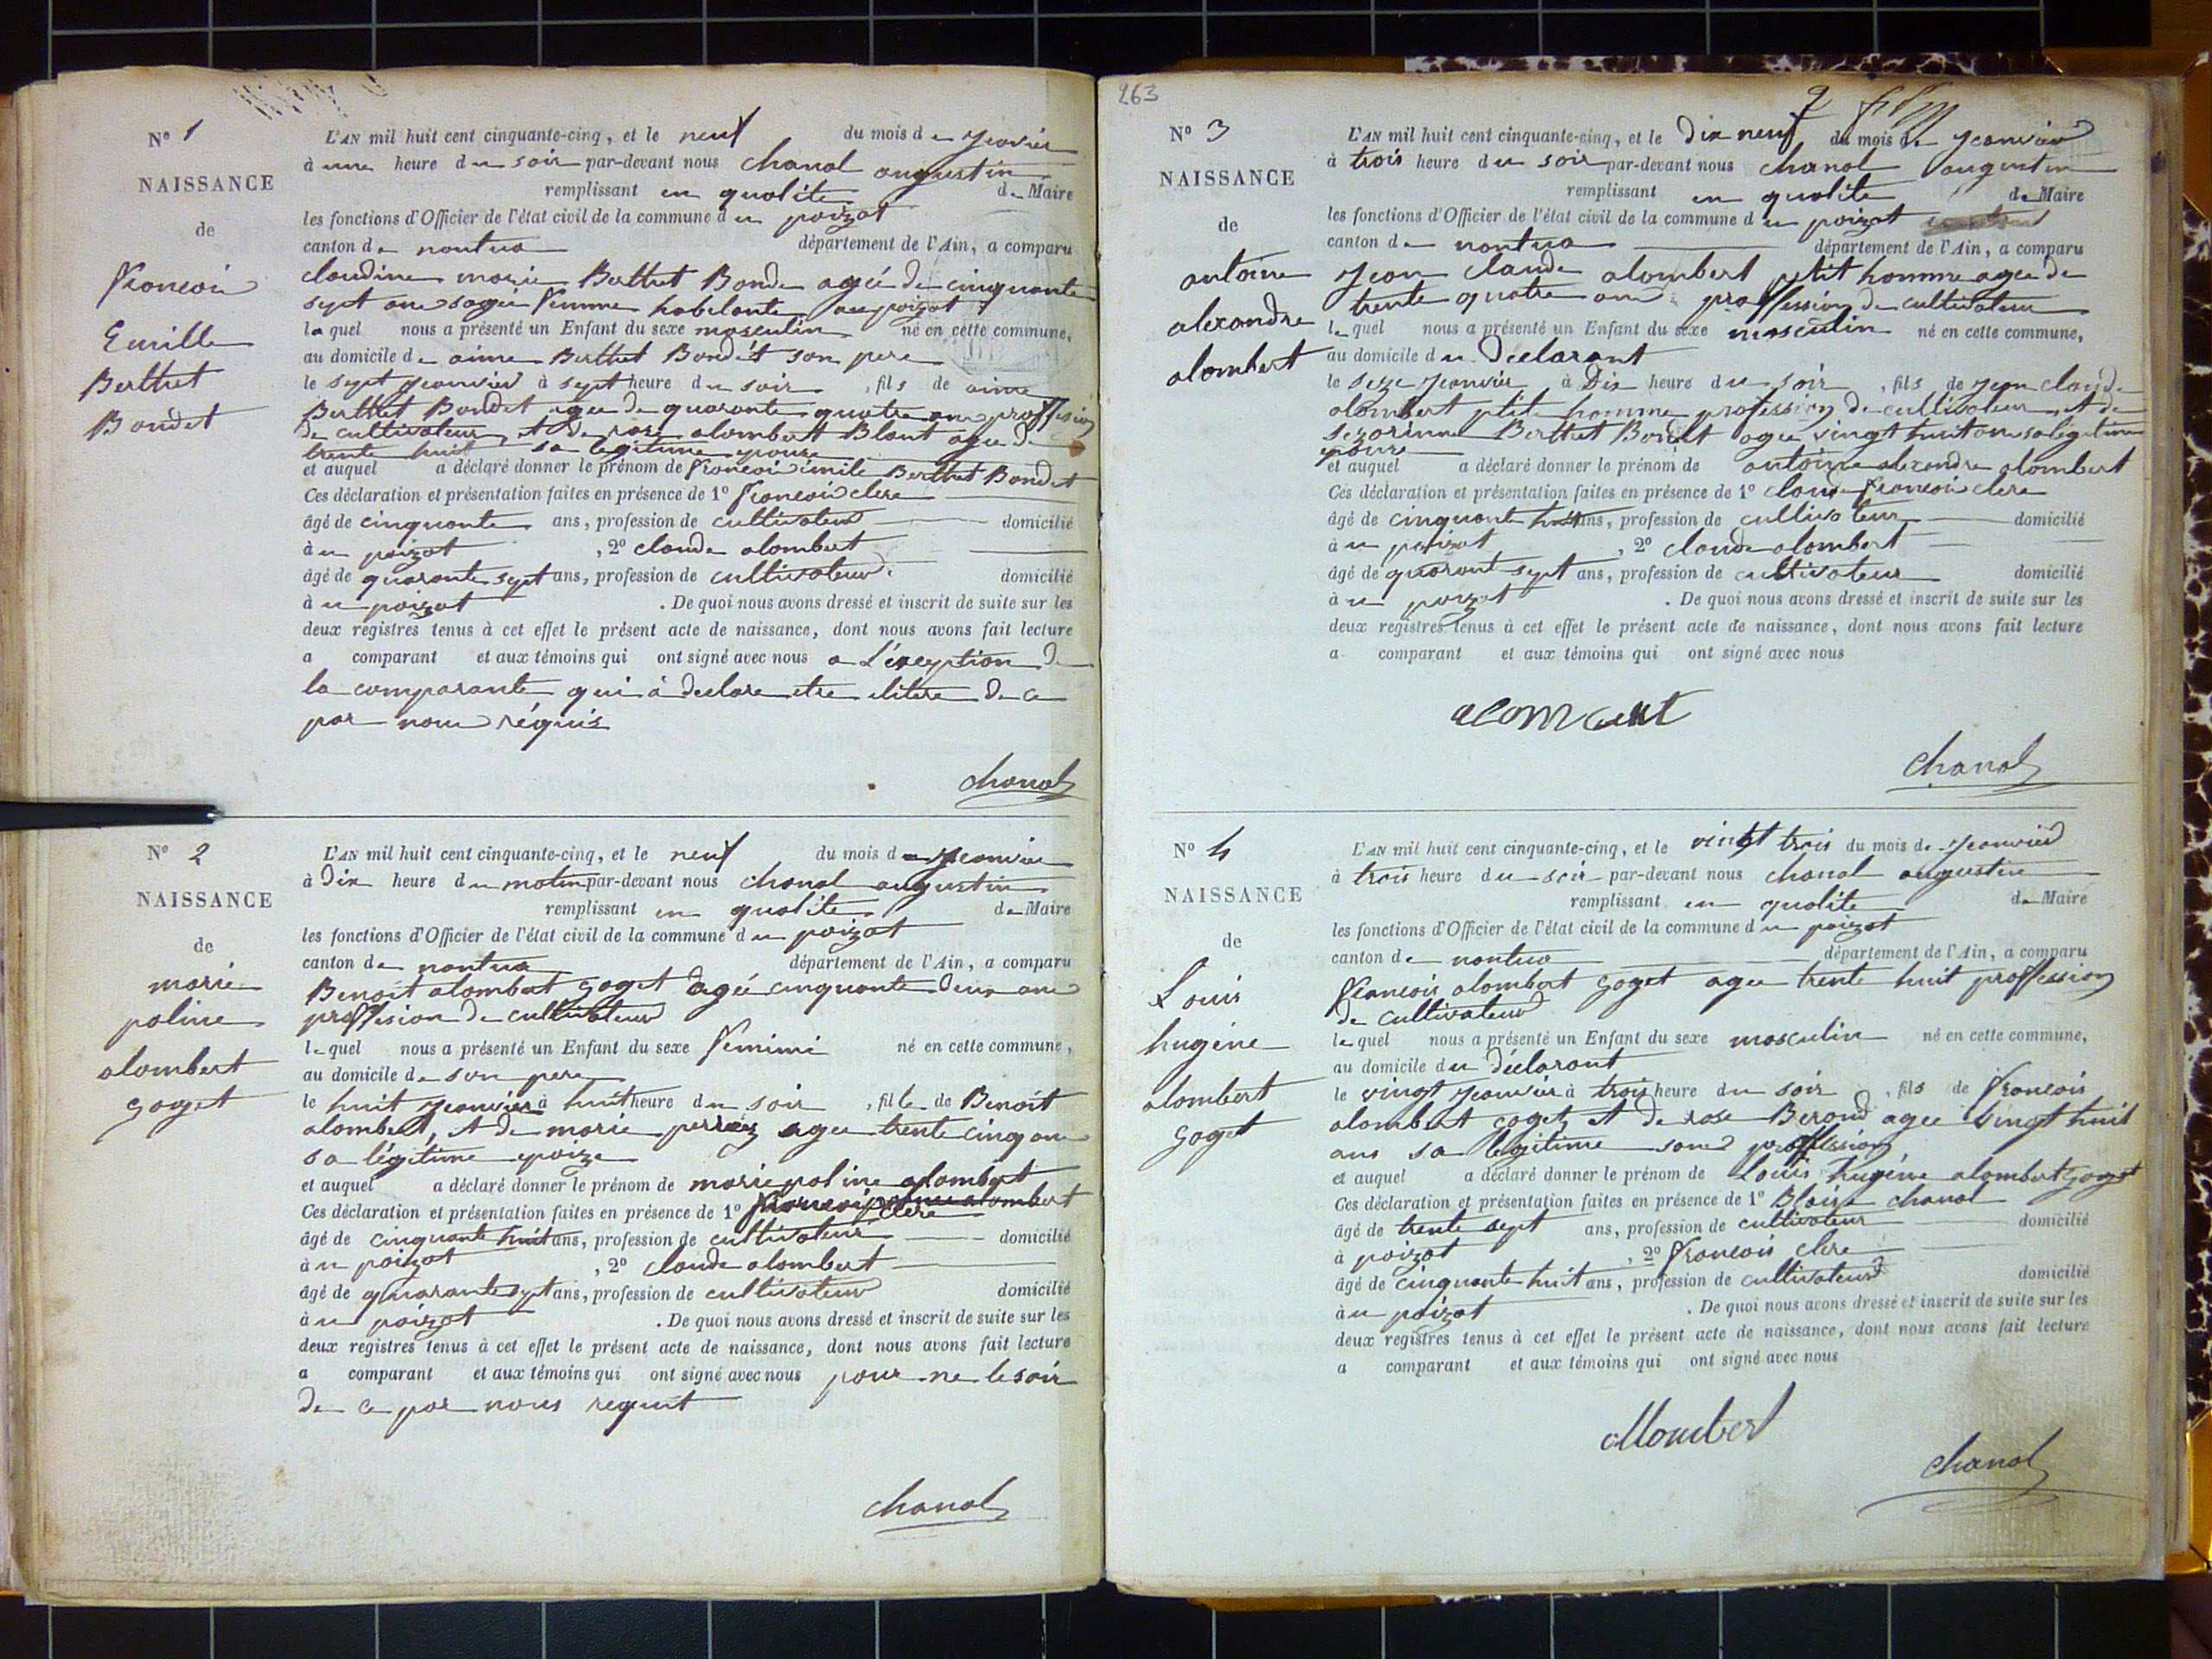 Nº 1
NAISSANCE
de
francois
Emille
Berthet
Bondet
L'AN mil huit cent cinquante-cinq, et le neuf du mois de Janvier
à une heure du soir par-devant nous chanal augustin
remplissant en qualite de Maire
les fonctions d'Officier de l'état civil de la commune du poizat
canton de nantua département de l'Ain, a comparu
claudine marie Berthet Bonde agée de cinquante
sept ans sage femme habitante au poizat
laquel nous a présenté un Enfant du sexe masculin né en cette commune,
au domicile de aime Berthet Bondet son pere
le sept Janvier à sept heure du soir, fils de aime
Berthet Bondet agee de quarante quatre ans proffession
de cultivateur et de rose alombert Blant agee de
trente huit sa legitime epouse
et auquel a déclaré donner le prénom de francois imile Berthet Bondet
Ces déclaration et présentation faites en présence de 1º francois clere
âgé de cinquante ans, profession de cultivateur domicilié
à u poizat, 2º claude alombert
âgé de quarante sept ans, profession de cultivateur domicilié
à u poizat. De quoi nous avons dressé et inscrit de suite sur les
deux registres tenus à cet effet le présent acte de naissance, dont nous avons fait lecture
a comparant et aux témoins qui ont signé avec nous a L'éxeyption de
la comparante qui à declare etre elitere de ce
par nous réquis
chanal
Nº 2
NAISSANCE
de
marie
poline
alombert
goget
L'AN mil huit cent cinquante-cinq, et le neuf du mois de Jeanvier
à Dix heure du matin par-devant nous chanal augustin
remplissant en qualite de Maire
les fonctions d'Officier de l'état civil de la commune du poizat
canton de nantua département de l'Ain, a comparu
Benoit alombert goget agée cinquante deux ans
proffesion de cultivateur
lequel nous a présenté un Enfant du sexe femini né en cette commune,
au domicile de son pere
le huit Jeanvier à huit heure du soir, fille de Benoit
alombert, et de marie perraz agee trente cinq ans
sa légitime epoize
et auquel a déclaré donner le prénom de marie poline alombert
Ces déclaration et présentation faites en présence de 1º francois clere
âgé de cinquante huit ans, profession de cultivateur domicilié
à u poizat, 2º claude alombert
âgé de quarante sept ans, profession de cultivateur domicilié
à u poizat. De quoi nous avons dressé et inscrit de suite sur les
deux registres tenus à cet effet le présent acte de naissance, dont nous avons fait lecture
a comparant et aux témoins qui ont signé avec nous pour ne le soir
de ce par nous requit
chanal
263
2
Nº 3
NAISSANCE
de
antoine
alexandre
alombert
L'AN mil huit cent cinquante-cinq, et le Dix neuf du mois de Jeanvier
à trois heure du soir par-devant nous chanal augustin
remplissant en qualite de Maire
les fonctions d'Officier de l'état civil de la commune du poizat
canton de nantua département de l'Ain, a comparu
Jean claude alombert ptit homme agee de
trente quatre ans proffession de cultivateur
lequel nous a présenté un Enfant du sexe masculin né en cette commune,
au domicile du declarant
le seize Jeanvier à Dix heure du soir, fils de Jean claude
alombert ptit homme profession de cultivateur et de
sezarinne Berthet Bondet agee vingt huit ans sa légitime
epouse
et auquel a déclaré donner le prénom de antoine alexandre alombert
Ces déclaration et présentation faites en présence de 1º claude francois clere
âgé de cinquante huit ans, profession de cultivateur domicilié
à u poizat, 2º claude alombert
âgé de quarant sept ans, profession de cultivateur domicilié
à u poizat. De quoi nous avons dressé et inscrit de suite sur les
deux registres tenus à cet effet le présent acte de naissance, dont nous avons fait lecture
a comparant et aux témoins qui ont signé avec nous
chanal
Nº 4
NAISSANCE
de
Louis
hugéne
alombert
goget
L'AN mil huit cent cinquante-cinq, et le vingt trois du mois de Jeanvier
à trois heure du soir par-devant nous chanal augustin
remplissant en qualite de Maire
les fonctions d'Officier de l'état civil de la commune du poizat
canton de nantua département de l'Ain, a comparu
francois alombert goget agee trente huit proffession
de cultivateur
lequel nous a présenté un Enfant du sexe masculin né en cette commune,
au domicile du déclarant
le vingt Jeanvier à trois heure du soir, fils de francois
alombert goget, et de rose Berond agee vingt huit
ans sa legitime sans proffession
et auquel a déclaré donner le prénom de Louis hugéne alombert goget
Ces déclaration et présentation faites en présence de 1º Blaise chanal
âgé de trente sept ans, profession de cultivateur domicilié
à poizat, 2º francois clere
âgé de cinquante huit ans, profession de cultivateur domicilié
à u poizat. De quoi nous avons dressé et inscrit de suite sur les
deux registres tenus à cet effet le présent acte de naissance, dont nous avons fait lecture
a comparant et aux témoins qui ont signé avec nous
Alombert
chanal